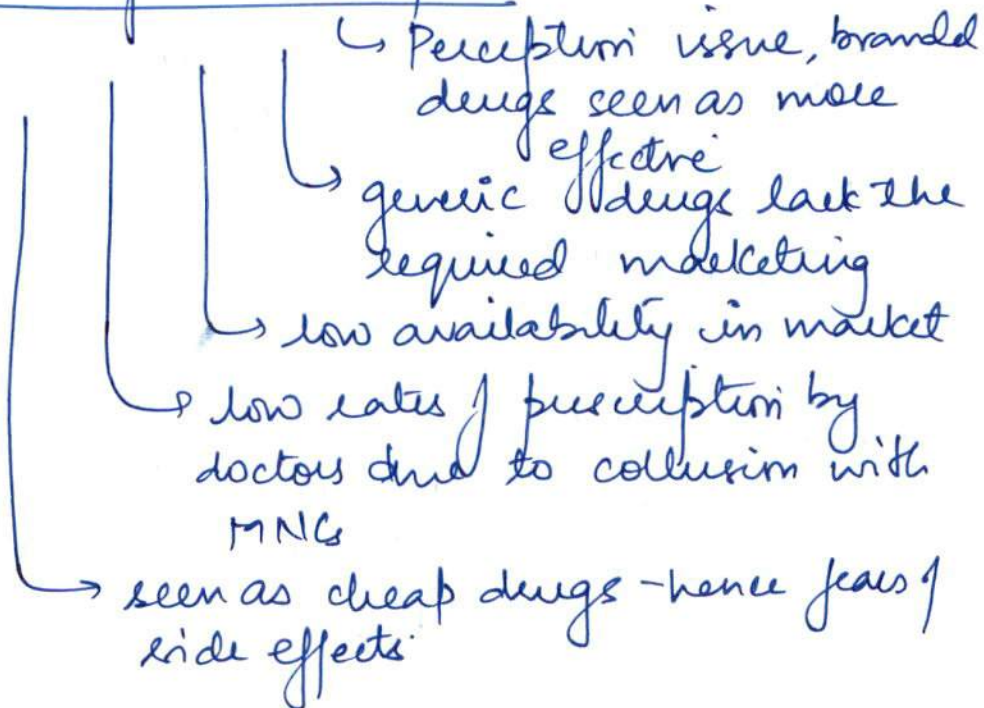 ↳ Perception issue, branded
drugs seen as more
effective
→ generic drugs lack the
required marketing
→ low availability in market
→ low rates of prescription by
doctors due to collusion with
MNCs
→ seen as cheap drugs - hence fears of
side effects